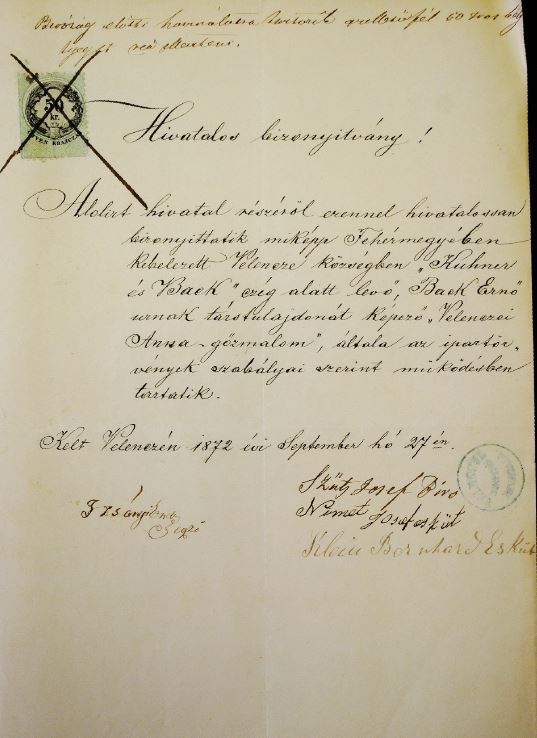 Bíróság előtti használatra
50
kr.
Hivatalos bizonyitvány!
Alólirt hivatal részéről ezennel hivatalossan
bizonyittatik miképp Fehérmegyében
kebelezett Velencze községben „Kuhner
és Back" czég alatt levő, Back Ernő
urnak társtulajdonát képező „Velenczei
Anna-gőzmalom", általa az ipartör„
vények szabályai szerint működésben
tartatik.
Kelt Velenczén 1872 évi September hó 27 én.
József Biro
Német Josef esküt
Klein Bernhard Esküt